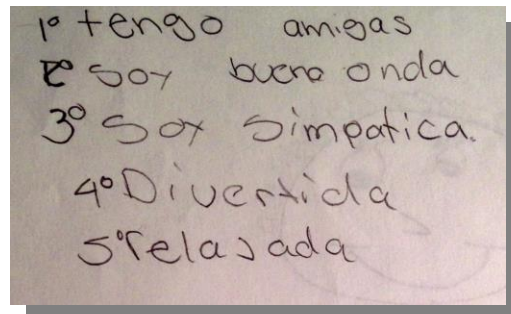 1º tengo amigas
2º Soy buena onda
3º Soy Simpatica.
4º Divertida
5º relajada